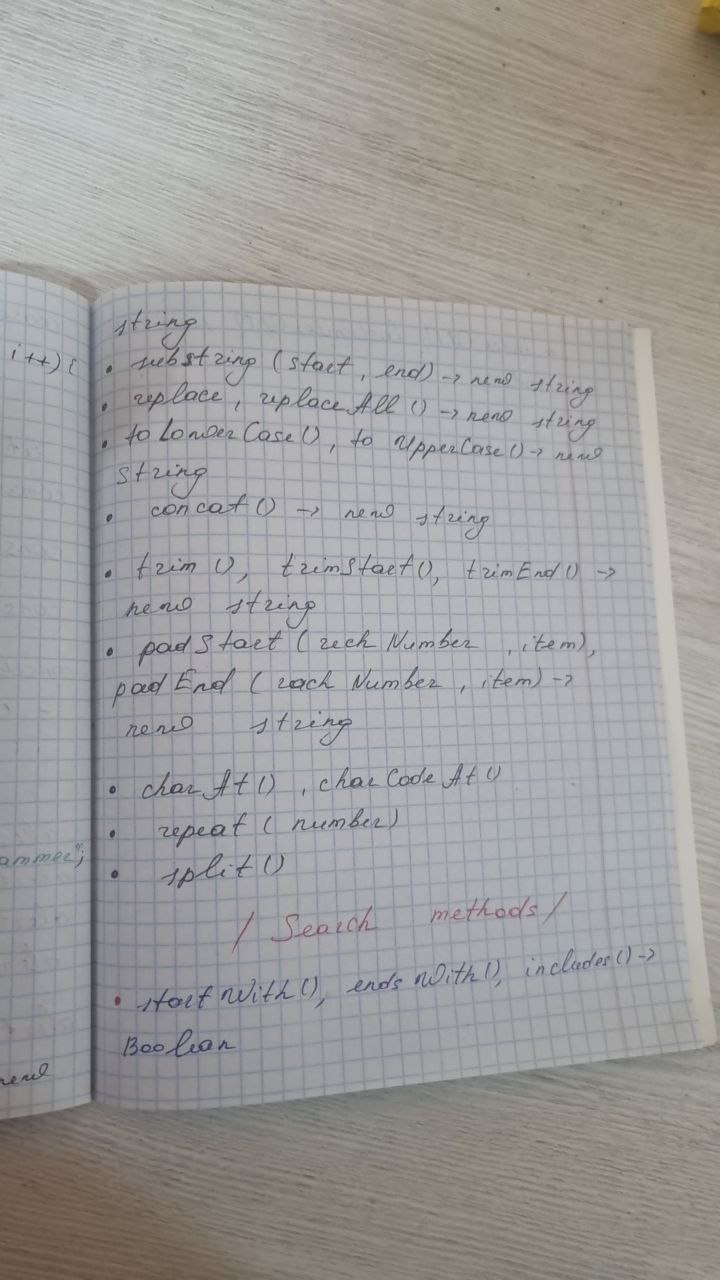 i++) {
string
• substring (start, end) -> new string
• replace, replaceAll () -> new string
• to LowerCase(), to UpperCase() -> new
string
• concat () -> new string
• trim (), trimStart(), trimEnd () ->
new string
• padStart (each Number, item),
padEnd (each Number, item) ->
new string
• charAt(), charCodeAt()
• repeat (number)
• split ()
ammer";
/ Search methods /
• start With(), ends With(), includes() ->
Boolean
new